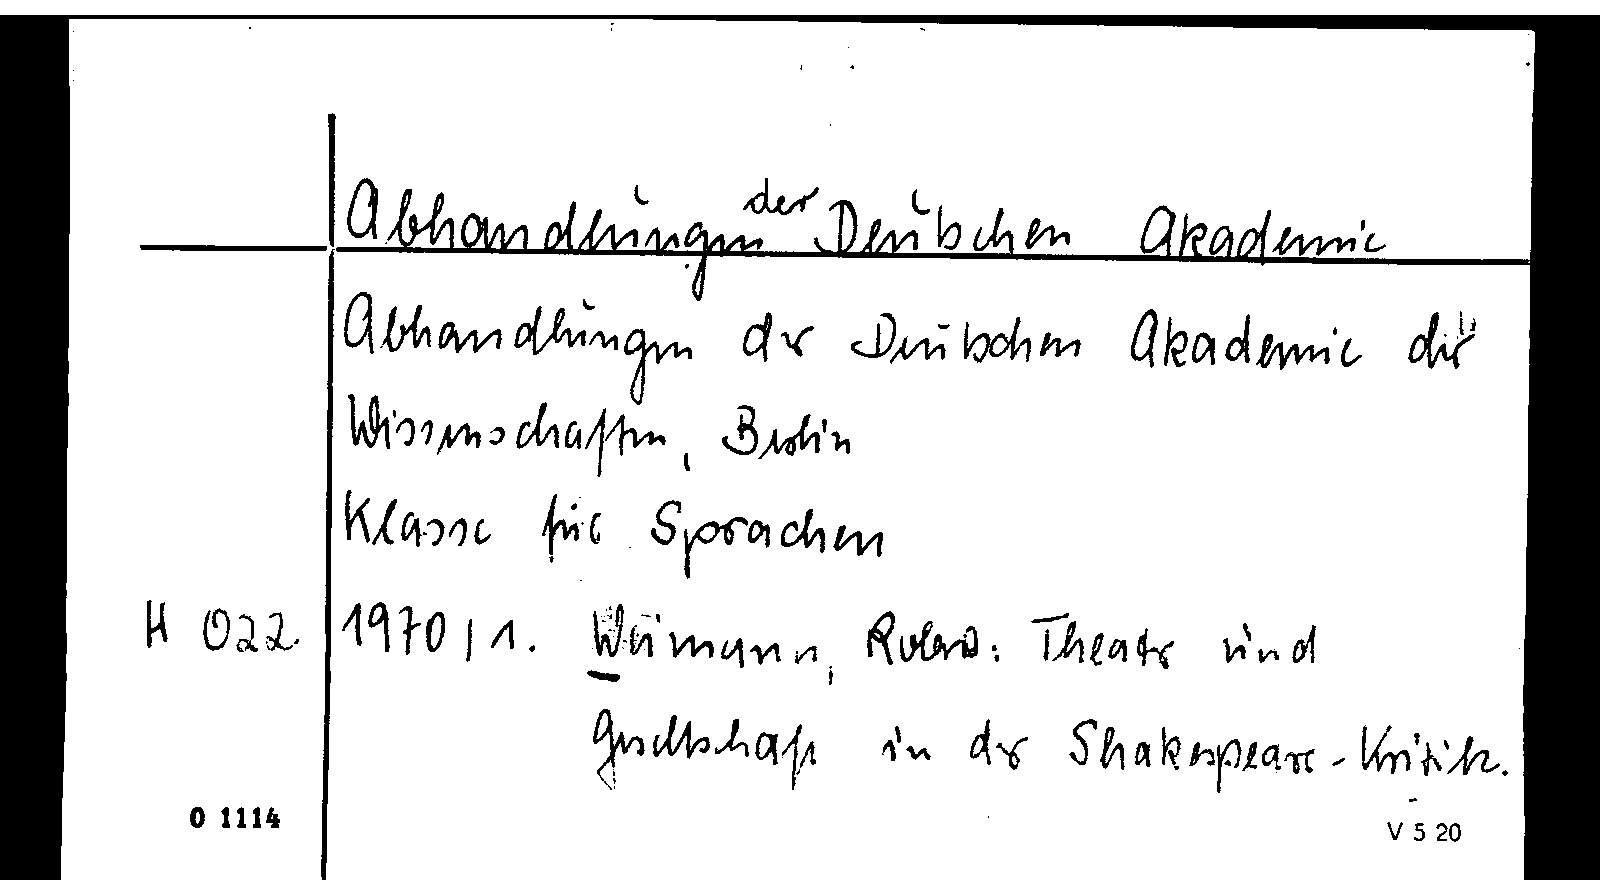 Abhandlungen der Deutschen Akademie
Abhandlungen der Deutschen Akademie der
Wissenschaften, Berlin
Klasse für Sprachen
H 022 1970/1. Weimann, Robert: Theater und
Gesellschaft in der Shakespeare-Kritik.
0 1114 V 5 20